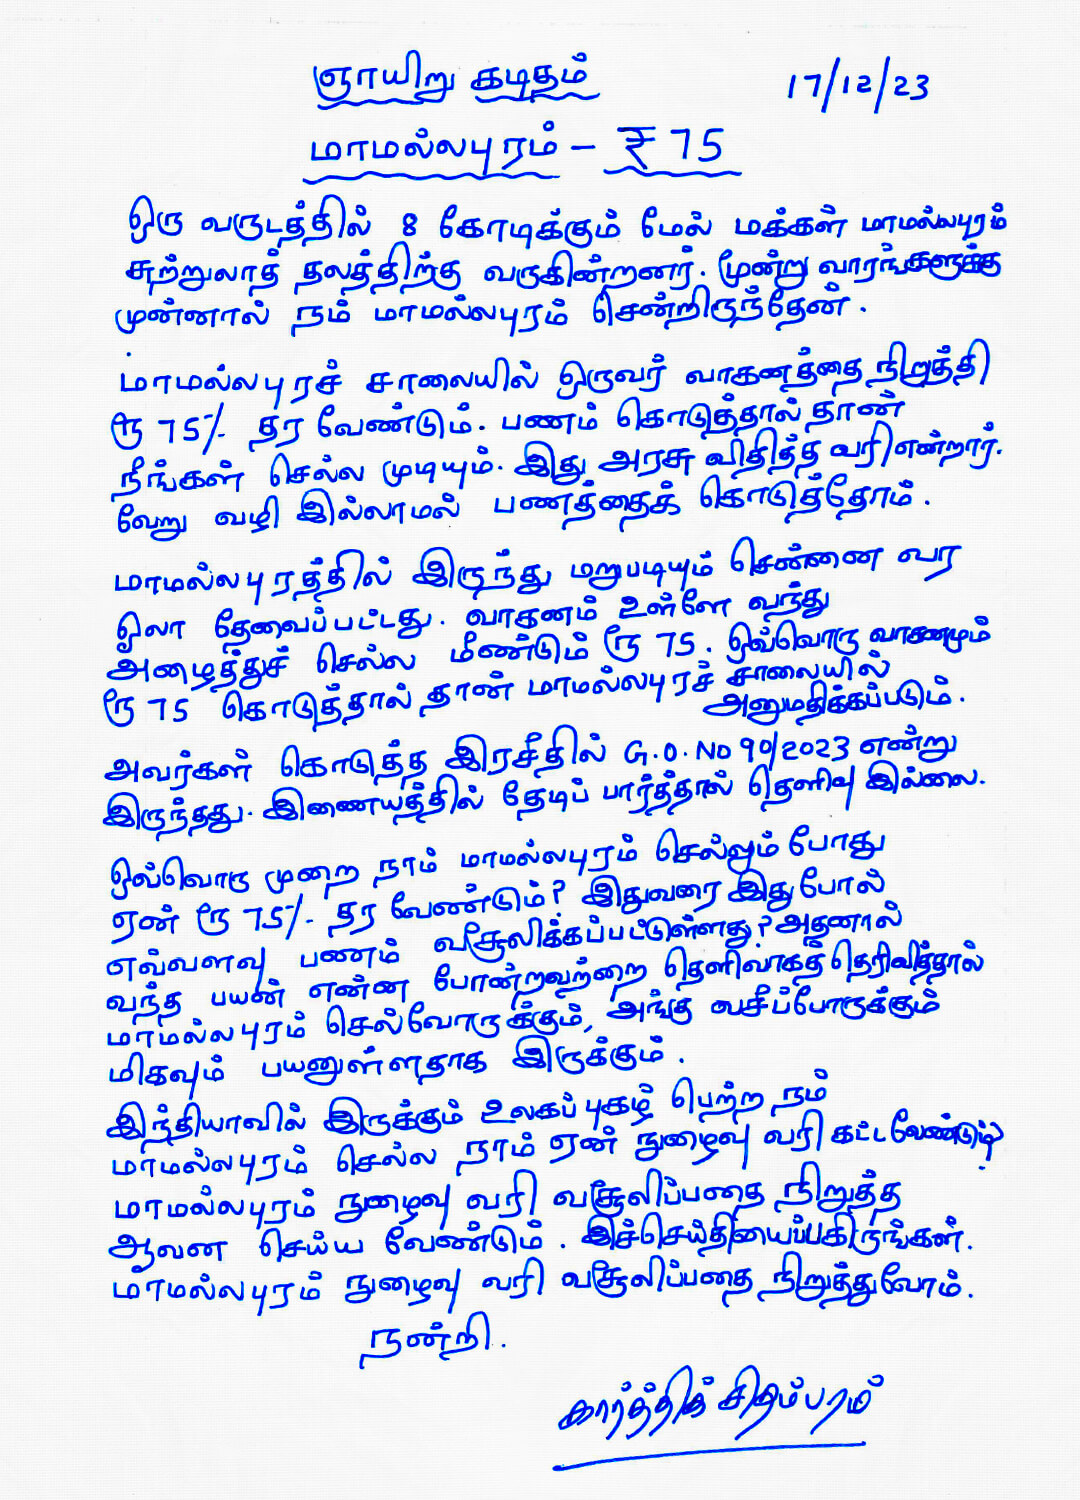 ஞாயிறு கடிதம்
17/12/23
மாமல்லபுரம் - ₹ 75
ஒரு வருடத்தில் 8 கோடிக்கும் மேல் மக்கள் மாமல்லபுரம்
சுற்றுலாத் தலத்திற்கு வருகின்றனர். மூன்று வாரங்களுக்கு
முன்னால் நம் மாமல்லபுரம் சென்றிருந்தேன்.
மாமல்லபுரச் சாலையில் ஒருவர் வாகனத்தை நிறுத்தி
ரூ 75/- தர வேண்டும். பணம் கொடுத்தால் தான்
நீங்கள் செல்ல முடியும். இது அரசு விதித்த வரி என்றார்.
வேறு வழி இல்லாமல் பணத்தைக் கொடுத்தோம்.
மாமல்லபுரத்தில் இருந்து மறுபடியும் சென்னை வர
ஓலா தேவைப்பட்டது. வாகனம் உள்ளே வந்து
அழைத்துச் செல்ல மீண்டும் ரூ 75. ஒவ்வொரு வாகனமும்
ரூ 75 கொடுத்தால் தான் மாமல்லபுரச் சாலையில்
அனுமதிக்கப்படும்.
அவர்கள் கொடுத்த இரசீதில் G.O. No 90/2023 என்று
இருந்தது. இணையத்தில் தேடிப் பார்த்தால் தெளிவு இல்லை.
ஒவ்வொரு முறை நாம் மாமல்லபுரம் செல்லும் போது
ஏன் ரூ 75/- தர வேண்டும்? இதுவரை இது போல்
எவ்வளவு பணம் வசூலிக்கப்பட்டுள்ளது? அதனால்
வந்த பயன் என்ன போன்றவற்றை தெளிவாகத் தெரிவித்தால்
மாமல்லபுரம் செல்வோருக்கும், அங்கு வசிப்போருக்கும்
மிகவும் பயனுள்ளதாக இருக்கும்.
இந்தியாவில் இருக்கும் உலகப் புகழ் பெற்ற நம்
மாமல்லபுரம் செல்ல நாம் ஏன் நுழைவு வரி கட்ட வேண்டும்?
மாமல்லபுரம் நுழைவு வரி வசூலிப்பதை நிறுத்த
ஆவன செய்ய வேண்டும். இச்செய்தியைப் பகிருங்கள்.
மாமல்லபுரம் நுழைவு வரி வசூலிப்பதை நிறுத்துவோம்.
நன்றி.
கார்த்திக் சிதம்பரம்